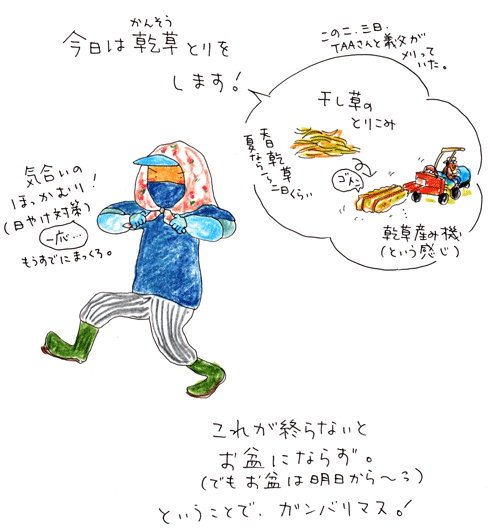 かんそう
今日は乾草とりを
します!
この二、三日、
TAAさんと義父が
刈って
いた。
干し草の
とりこみ
夏乾草
なら〜
二日くらい
ゴん
乾草産み機
(という感じ)
気合いの
ほっかむり!
(日やけ対策)
一応…
もうすでにまっくろ。
これが終らないと
お盆にならず。
(でもお盆は明日から〜ろ)
ということで、ガンバリマス!